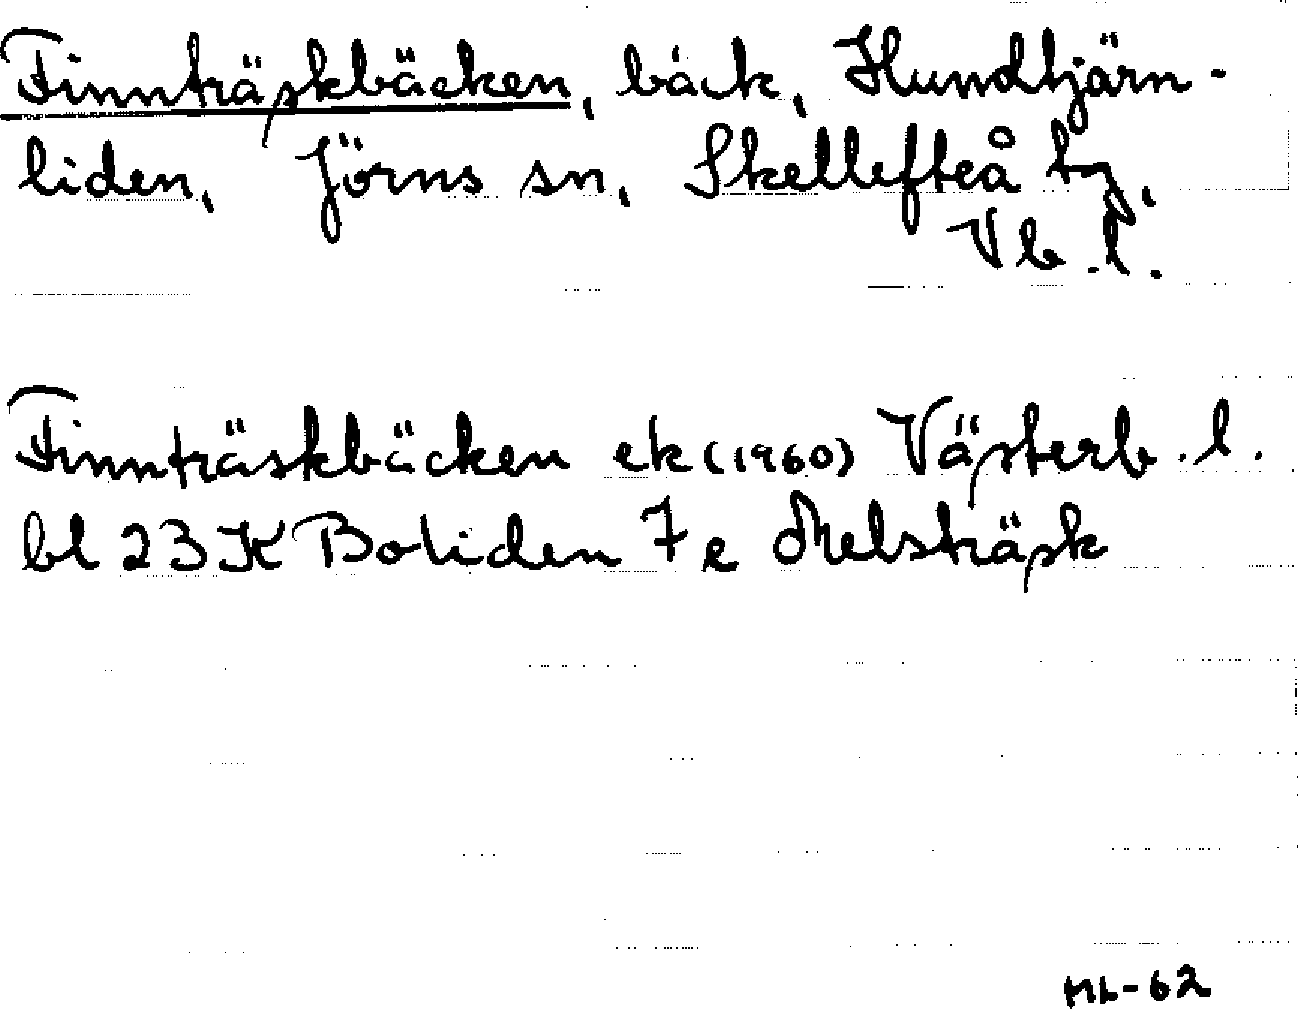 Finnträskbäcken, bäck, Hundtjärn-
liden, Jörns sn, Skellefteå tg,
Vb.l.
Finnträskbäcken ek (1960) Västerb.l.
bl 23 K Boliden 7 e Melsträsk
ML-62